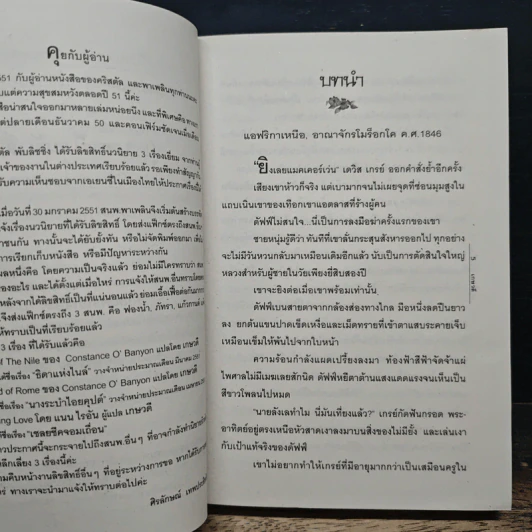 คุยกับผู้อ่าน
551 กับผู้อ่านหนังสือของคริสตัล และพาเพลินทุกท่านนะคะ
แต่ความสุขสมหวังตลอดปี 51 นี้ค่ะ
น่าสนใจออกมาหลายเล่มหน่อยนึง และที่พิเศษคือ
แต่ปลายเดือนธันวาคม 50 และคอนเฟิร์มชัดเจนเมื่อเดือน
ตัล พับลิชชิ่ง ได้รับลิขสิทธิ์นวนิยาย 3 เรื่องเยี่ยม
เจ้าของงานในต่างประเทศเรียบร้อยแล้ว รอเพียงทำสัญญา
รับความเห็นชอบจากเอเยนซี่ในเมืองไทยให้ประกาศก่อน
เมื่อวันที่ 30 มกราคม 2551 สนพ.พาเพลินจึงเริ่มต้น
จ้งเรื่องนวนิยายที่ได้ลิขสิทธิ์ โดยส่งแฟ็กซ์ตรงถึงสนพ.
ชนกัน ทางนั้นจะได้ยับยั้งทัน หรือไม่จัดพิมพ์ออกมา
การเรียกเก็บหนังสือ หรือมีปัญหาระหว่างกัน
ผลหนึ่งคือ โดยความเป็นจริงแล้ว ย่อมไม่มีใครทราบว่า
และ ได้ตั้งแต่เมื่อไหร่ การแจ้งให้สนพ.อื่นทราบโดย
หลังจากได้ลิขสิทธิ์เป็นที่แน่นอนแล้ว ย่อมเอื้อเฟื้อต่อกัน
จึงส่งแฟ็กซ์ตรงถึง 3 สนพ. คือ ฟองน้ำ, ภัทรา, แก้วกานต์
ทราบเป็นที่เรียบร้อยแล้ว
ที่ได้รับแล้วคือ
of The Nile ของ Constance O' Banyon แปลโดย เกษวดี
ชื่อเรื่อง "ธิดาแห่งไนล์" วางจำหน่ายประมาณเดือน มีนาคม
d of Rome ของ Constance O' Banyon แปลโดย เกษวดี
ชื่อเรื่อง "นางระบำไอยคุปต์" วางจำหน่ายประมาณเดือน
ing Love โดย แนน ไรอัน ผู้แปล เกษวดี
ชื่อเรื่อง "เชลยชีคจอมเถื่อน"
ประกาศนี้จะกระจายไปถึงสนพ.อื่นๆ ที่อาจกำลังทำ
หลีกเลี่ยง 3 เรื่องนี้ค่ะ
ความคืบหน้างานลิขสิทธิ์อื่นๆ ที่อยู่ระหว่างการขอ หากได้รับ
ทางเราจะนำมาแจ้งให้ทราบต่อไปค่ะ
ศิรลักษณ์
บทนำ
แอฟริกาเหนือ, อาณาจักรโมร็อกโค ค.ศ.1846
"ยิงเลยแมคเคอร์เว่น" เดวิส เกรย์ ออกคำสั่งย้ำอีกครั้ง
เสียงเขาห้าวก็จริง แต่เบามากจนไม่เผยจุดที่ซ่อนมุมสูงใน
แถบเนินเขาของเทือกเขาแอตลาสที่ร้างผู้คน
ดัฟฟ์ไม่สนใจ...นี่เป็นการลงมือฆ่าครั้งแรกของเขา
ชายหนุ่มรู้ดีว่า ทันทีที่เขาลั่นกระสุนสังหารออกไป ทุกอย่าง
จะไม่มีวันหวนกลับมาเหมือนเดิมอีกแล้ว นับเป็นการตัดสินใจใหญ่
หลวงสำหรับผู้ชายในวัยเพียงยี่สิบสองปี
เขาจะยิงต่อเมื่อเขาพร้อมเท่านั้น
ดัฟฟ์เบนสายตาจากกล้องส่องทางไกล มือหนึ่งลดปืนยาว
ลง ยกต้นแขนปาดเช็ดเหงื่อและเม็ดทรายที่เข้าตาแสบระคายเจ็บ
เหมือนเข็มไฟทิ่มพันไปจากใบหน้า
ความร้อนกำลังแผดเปรี้ยงลงมา ท้องฟ้าสีฟ้าจัดจ้าแผ่
ไพศาลไม่มีเมฆเลยสักนิด ดัฟฟ์หยีตาต้านแสงแดดแรงจนเห็นเป็น
สีขาวโพลนไปหมด
"นายลังเลทำไม นี่มันเที่ยงแล้ว?" เกรย์กัดฟันกรอด พระ-
อาทิตย์อยู่ตรงเหนือหัวสาดเงาลงมาบนสิ่งของไม่มียั้ง และเล่นเงา
กับเป้าแท้จริงของดัฟฟ์
เขาไม่อยากทำให้เกรย์ที่มีอายุมากกว่าเป็นเสมือนครูใน